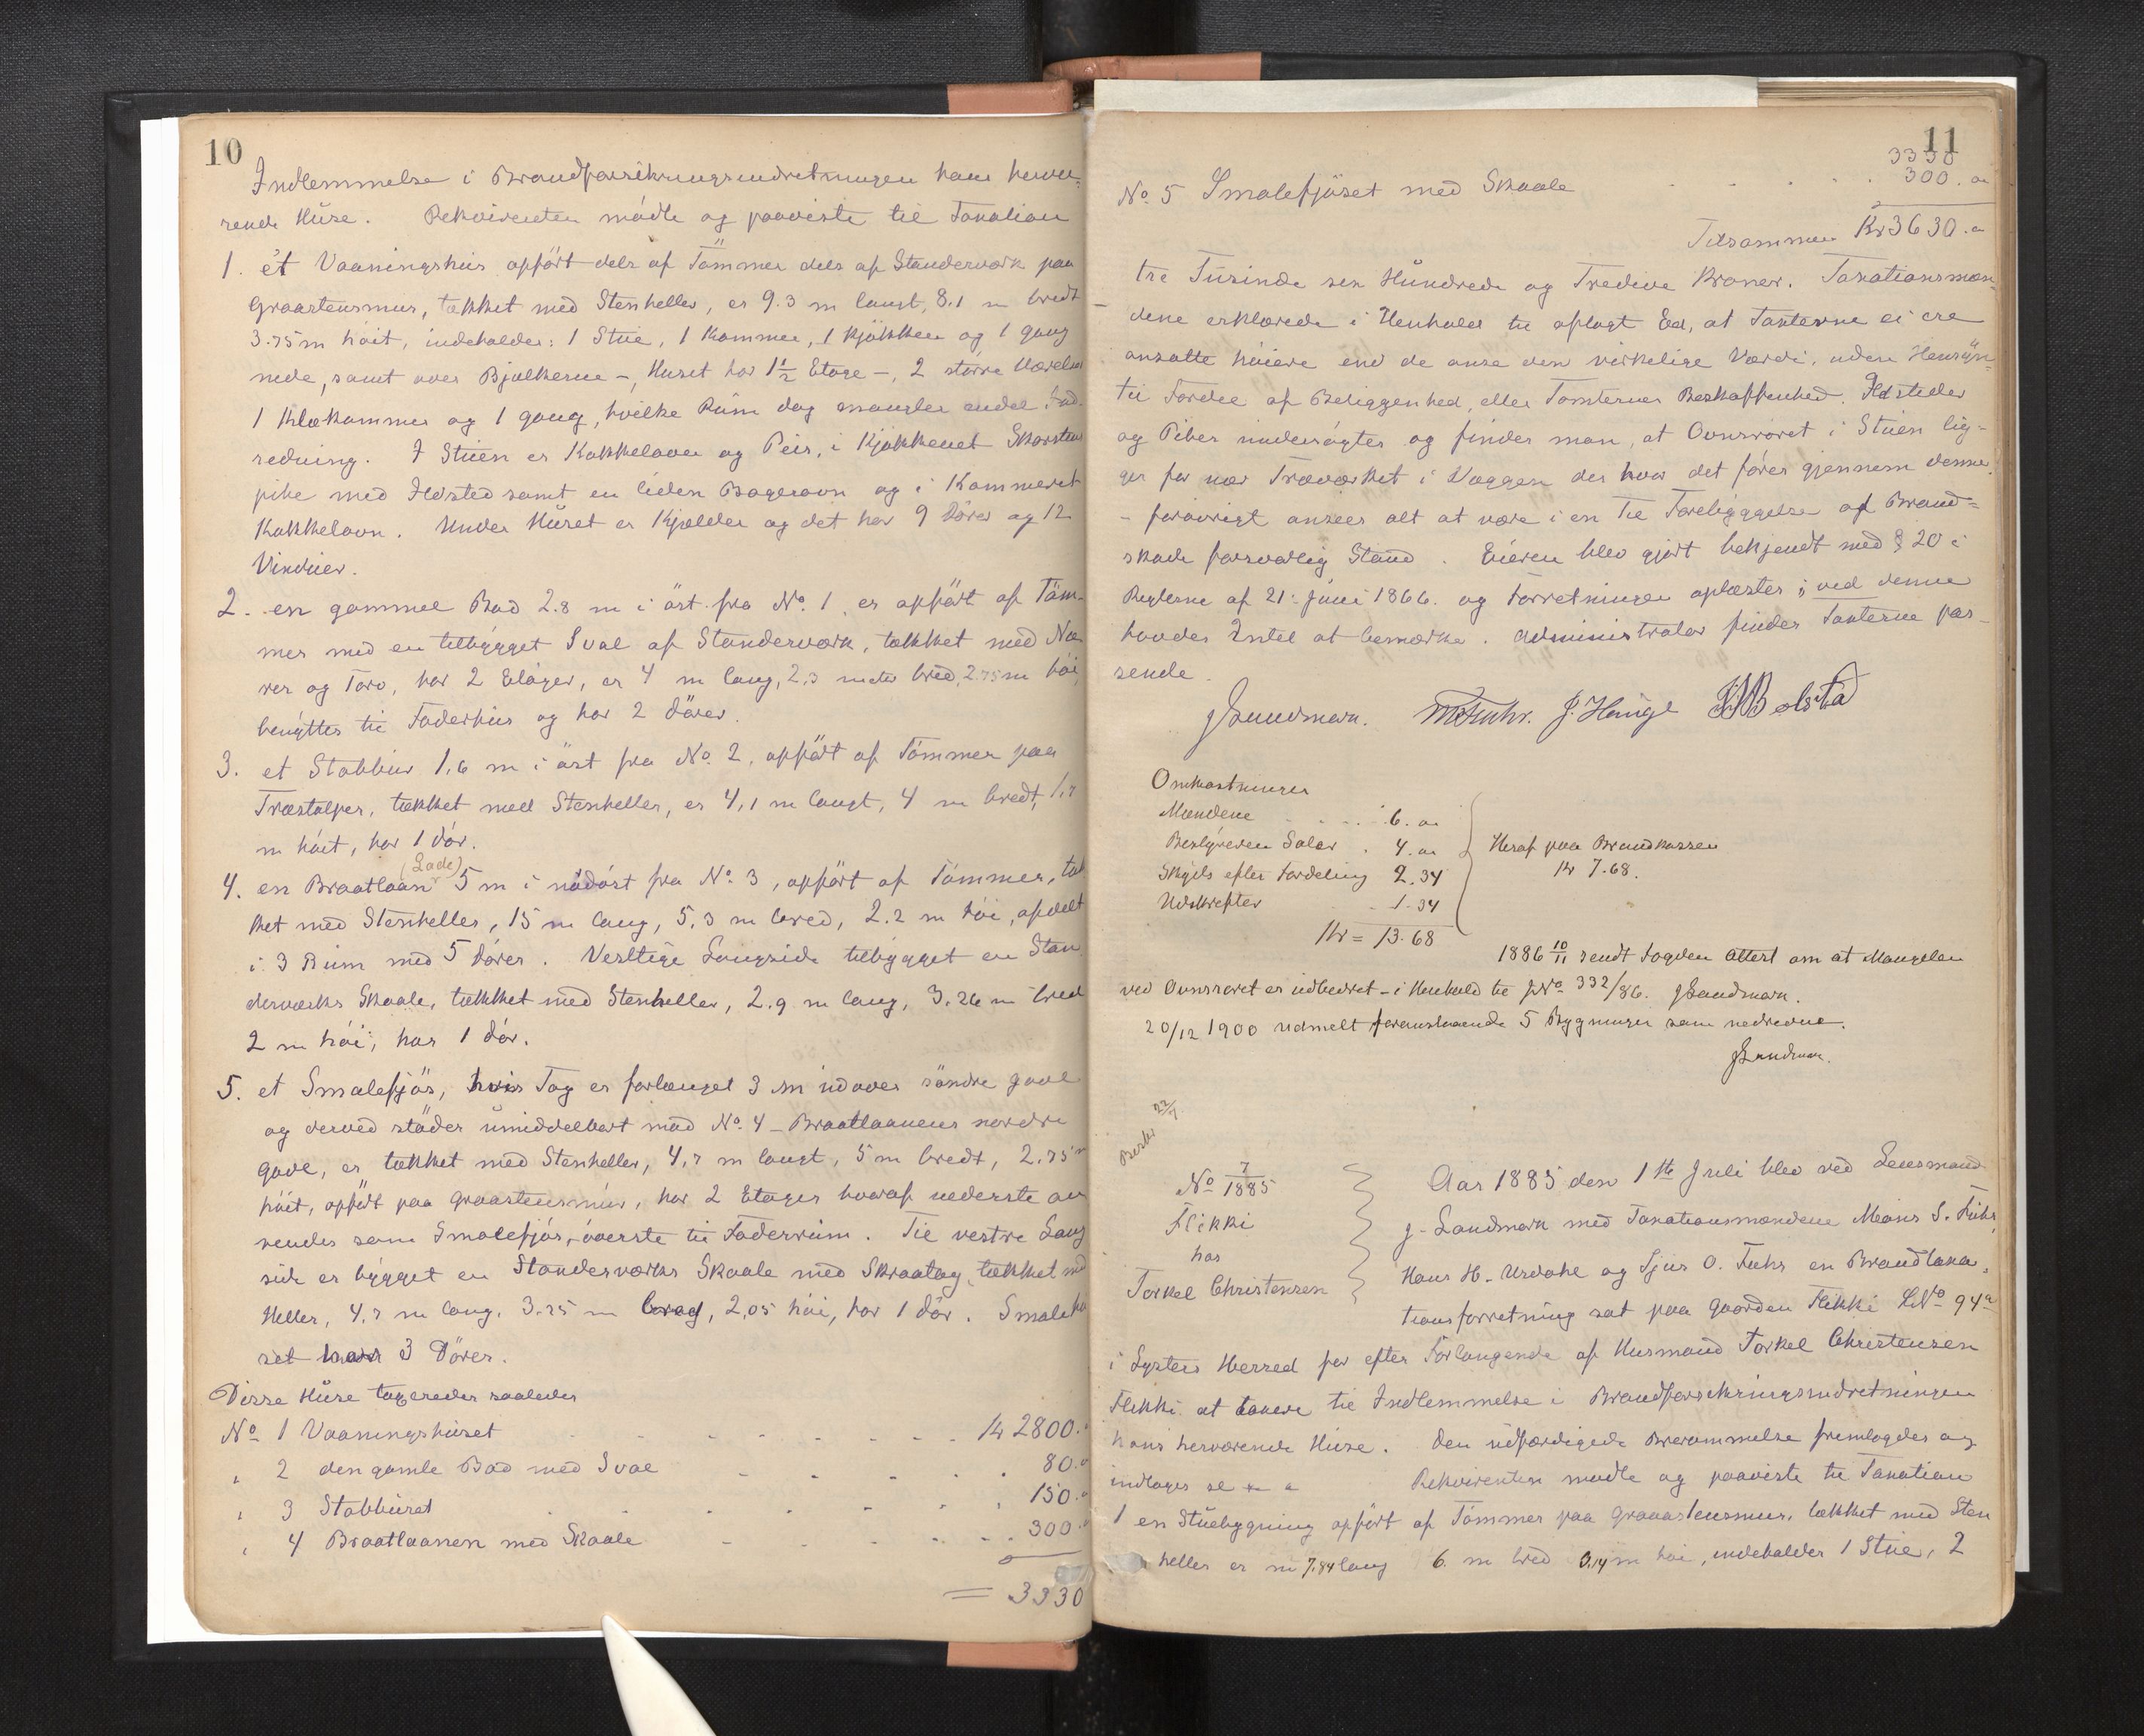 10
Indlemmelse i Brandforsikringsindretningen hans hervæ-
rende Huse. Rekvirenten mødte og paaviste til Taxation
1. et Vaaningshus opført dels af Tømmer dels af Standerværk paa
Graastensmur, tækket med Stenheller, er 9.3 m langt, 8.1 m bredt
3.75 m høit, indeholder: 1 Stue, 1 Kammer, 1 Kjøkken og 1 gang
nede, samt over Bjelkerne –, Huset har 1½ Etage –, 2 større Værelser
1 Klækammer og 1 gang, hvilke Rum dog mangler endel Ind-
redning. I Stuen er Kakkelovn og Peis, i Kjøkkenet Skorstens
pibe med Ildsted samt en liden Bagerovn og i Kammeret
Kakkelovn. Under Huset er Kjælder og det har 9 Dører og 12
Vinduer.
2. en gammel Bod 2.8 m i øst fra No. 1, er opført af Tøm-
mer med en tilbygget Sval af Standerværk, tækket med Næ-
ver og Torv, har 2 Etager, er 4 m lang, 2,3 meter bred, 2.75 m høi,
benyttes til Foderhus og har 2 Dører.
3. et Stabbur 1,6 m i øst fra No. 2, opført af Tømmer paa
Træstolper, tækket med Stenheller, er 4,1 m langt, 4 m bredt, 1,7
m høit, har 1 Dør.
(Lade)
4. en Braatlaan 5 m i nødøst fra No. 3, opført af Tømmer, tæk
ket med Stenheller, 15 m lang, 5,3 m bred, 2.2 m høi, afdelt
i 3 Rum med 5 Dører. Vestlige Langside tilbygget en Stan
derværks Skaale, tækket med Stenheller, 2.9 m lang, 3.26 m bred
2 m høi, har 1 Dør.
5. et Smalefjøs, hvis Tag er forlænget 3 m udover søndre gavl
og derved støder umiddelbart mod No. 4 – Braatlaanens nordre
gavl, er tækket med Stenheller, 4,7 m langt, 5 m bredt, 2.75 m
høit, opført paa Graastensmur, har 2 Etager hvoraf nederste an
vendes som Smalefjøs, øverste til Foderrum. Til vestre Lang
side er bygget en Standerværks Skaale med Skraatag, tækket med
Heller, 4,7 m lang, 3.25 m bred, 2,05 høi, har 1 Dør.
set har 3 Dører.
Disse Huse taxeredes saaledes
No 1 Vaaningshuset Kr 2800.
" 2 den gamle Bod med Sval 80.
" 3 Stabburet 150.
" 4 Braatlaanen med Skaale 300.
= 3330
11
3330
No. 5 Smalefjøset med Skaale 300.
Tilsammen Kr 3630.
tre Tusinde sex Hundrede og Tredive Kroner. Taxationsmæn-
dene erklærede i Henhold til aflagt Ed, at Taxterne ei ere
ansatte høiere end de anse den virkelige Værdi, uden Hensyn
til Fordel af Beliggenhed, eller Tomternes Beskaffenhed. Ildsteder
og Piber undersøgtes og finder man, at Ovnsrøret i Stuen lig-
ger for nær Træværket i Væggen der hvor det føres gjennem denne,
– forøvrigt ansees alt at være i en til Forebyggelse af Brand-
skade forsvarlig Stand. Eieren blev gjort bekjendt med § 20 i
Reglerne af 21. Juni 1866. og Forretningen oplæstes; ved denne
havdes Intet at bemærke. Administrator finder Taxterne pas-
sende.
J Landmark. M S Fuhr. J. Hauge
Omkostninger
Mændene 6.
Bestyreren Salær 4.
Skyds efter Fordeling 2.34
Udskrifter 1.34
Kr = 13.68
Heraf paa Brandkassen
Kr 7.68.
1886 10/11 sendt Fogden Attest om at Mangelen
ved Ovnsrøret er udbedret – i Henhold til No 332/86. J Landmark.
20/12 1900 udmelt foranstaaende 5 Bygninger som nedrevne.
J Landmark.
No 7/1885
Flikki
hos
Torkel Christensen
Aar 1885 den 1ste Juli blev ved Lensmand
J. Landmark med Taxationsmændene Mons S. Fuhr,
Hans H. Urdahl og Sjur O. Fuhr en Brandtaxa-
tionsforretning sat paa Gaarden Flikki LNo 94a
i Lysters Herred for efter Forlangende af Husmand Torkel Christensen
Flikki at taxere til Indlemmelse i Brandforsikringsindretningen
hans herværende Huse. Den udfærdigede Berammelse fremlagdes og
indtages Rekvirenten mødte og paaviste til Taxation
1 en Stuebygning opført af Tømmer paa Graastensmur, tækket med Sten
heller er m 7.84 lang 6. m bred 3.14 m høi, indeholder 1 Stue, 2